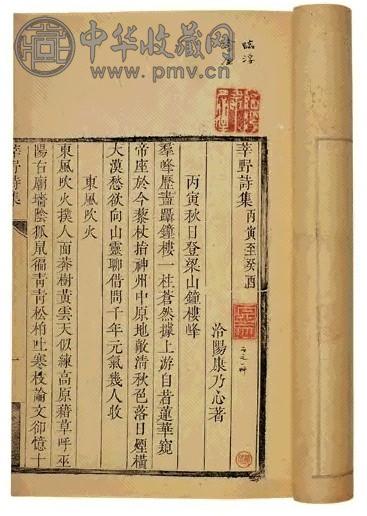 中华收藏网
www.pmv.cn
莘野詩集 丙寅至癸酉
洽陽康乃心著
丙寅秋日登梁山鐘樓峰
羣峰歷盡躡鐘樓一柱蒼然據上游自昔蓮華窺
帝座於今藜杖指神州中原地敞清秋色落日煙橫
大漠愁欲向山靈聊借問千年元氣幾人收
東風吹火
東風吹火撲人面莽樹黃雲天似練高原藉草呼巫
陽古廟墻陰狐鼠徧青青松柏吐寒枝論文卻憶十
莘野詩集
一